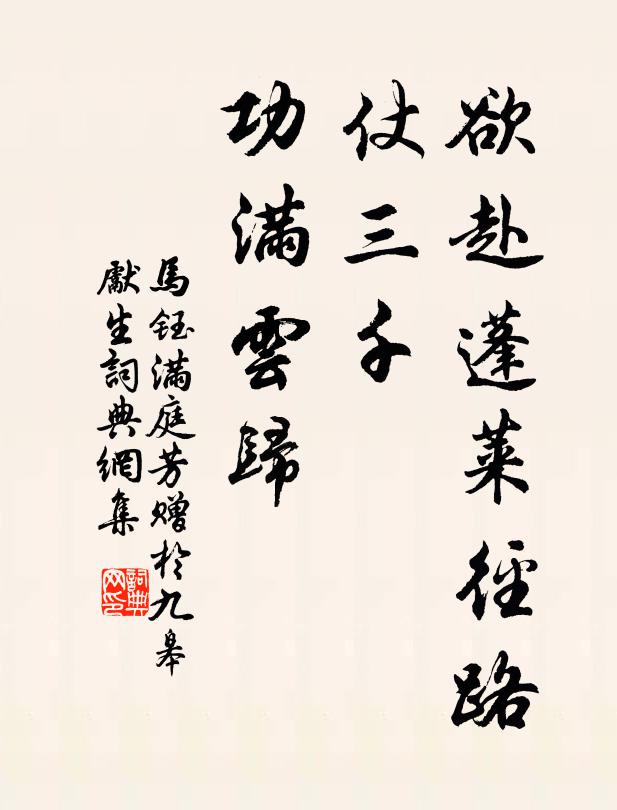 欲赴蓬萊徑路
仗三千
功滿雲歸
馬鈺滿庭芳贈於九皋
獻生詞典網集
詞典网印